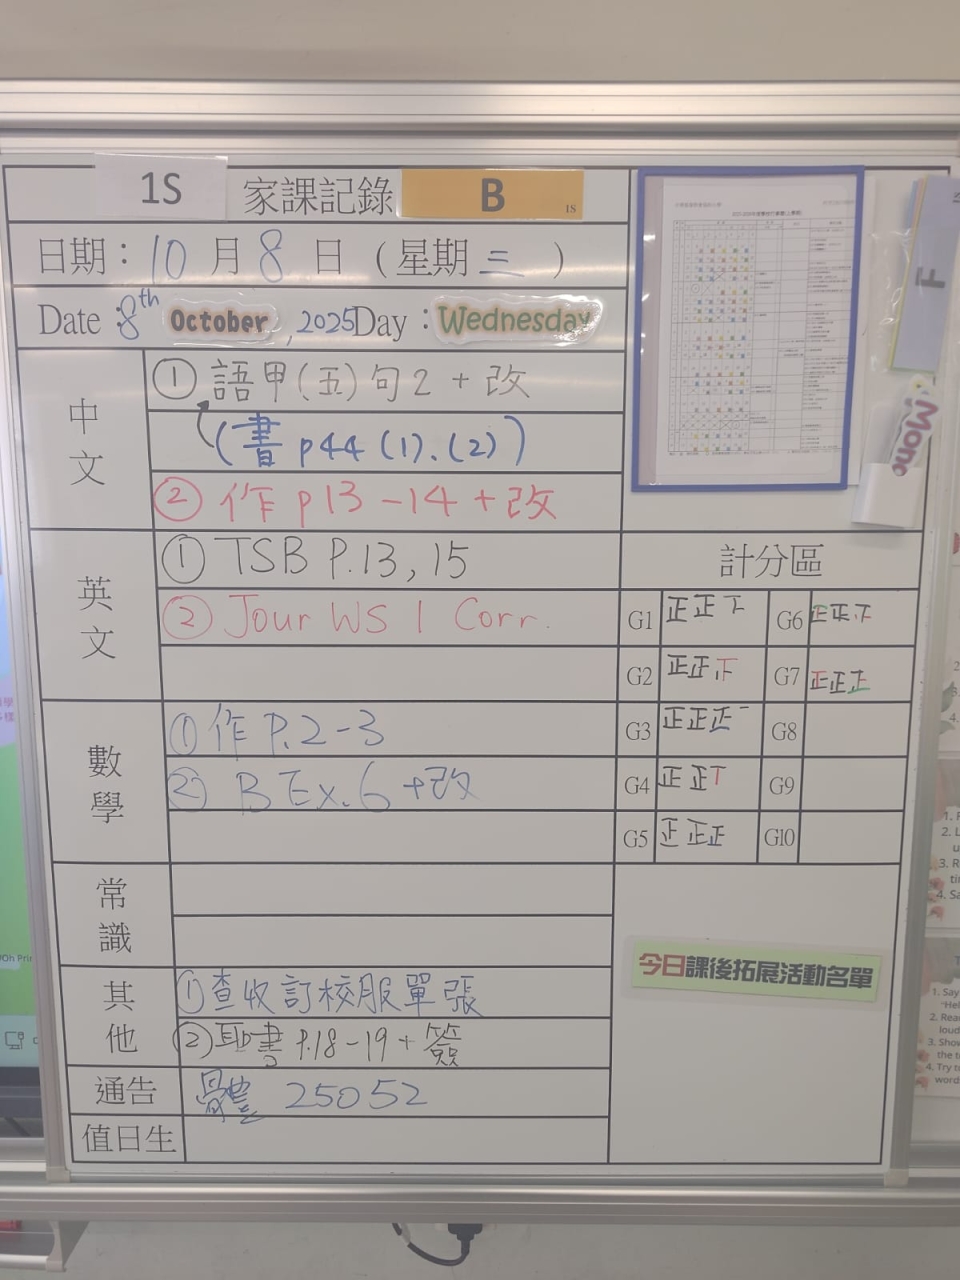 1S 家課記錄 B 1S
日期：10月8日（星期三）
Date：8th October, 2025 Day：Wednesday
中文
① 語甲(五)句2 + 改
(書 p44 (1).(2))
② 作 p13-14 + 改
英文
① TSB P.13, 15
② Jour WS 1 Corr.
數學
① 作 P.2-3
② B Ex.6 + 改
常識
其他
① 查收訂校服單張
② 耶書 P.18-19 + 簽
通告
體 25052
值日生
計分區
G1 正正下
G6 正正下
G2 正正下
G7 正正正
G3 正正正一
G8
G4 正正丅
G9
G5 正正正
G10
今日課後拓展活動名單
F
Mono